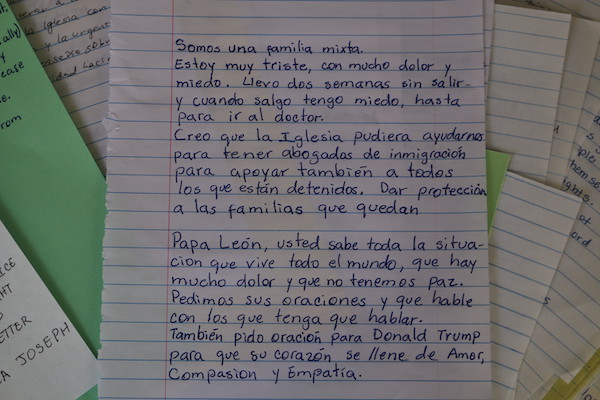 Somos una familia mixta.
Estoy muy triste, con mucho dolor y
miedo. Llevo dos semanas sin salir-
y cuando salgo tengo miedo, hasta
para ir al doctor.
Creo que la Iglesia pudiera ayudarnos
para tener abogados de inmigración
para apoyar también a todos
los que están detenidos. Dar protección
a las familias que quedan
Papa León, usted sabe toda la situa-
cion que vive todo el mundo, que hay
mucho dolor y que no tenemos paz.
Pedimos sus oraciones y que hable
con los que tenga que hablar.
También pido oración para Donald Trump
para que su corazón se llene de Amor,
Compasion y Empatía.
Iglesia con
y la urgent
ease
rom
ICE
HT
ETTER
A JOSEPH
hem se
ights.
at
ord